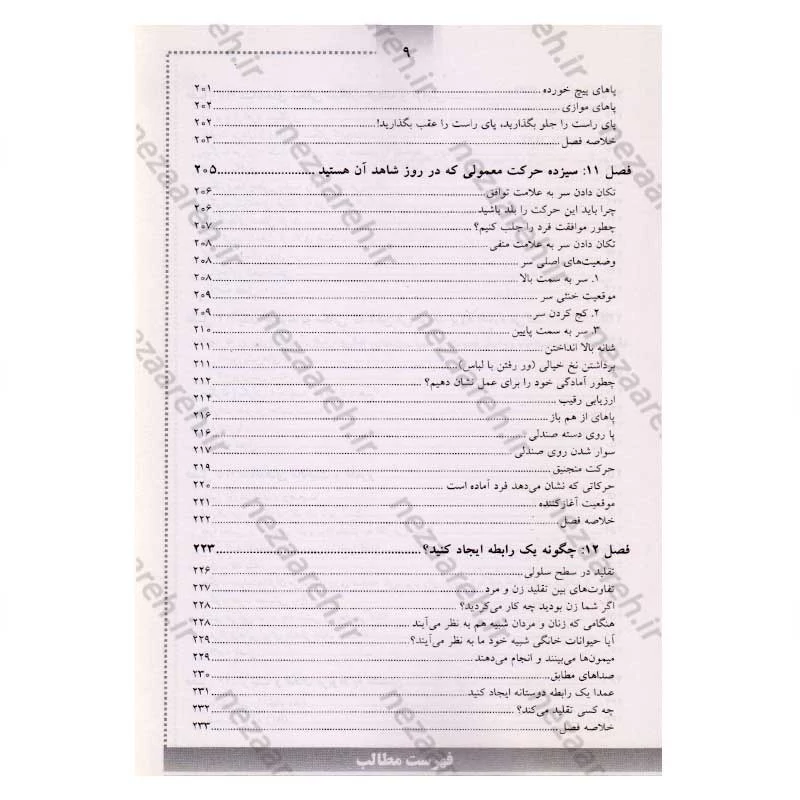 ۹
پاهای پیچ خورده ... ۲۰۱
پاهای موازی ... ۲۰۲
پای راست را جلو بگذارید، پای راست را عقب بگذارید! ... ۲۰۲
خلاصه فصل ... ۲۰۳
فصل ۱۱: سیزده حرکت معمولی که در روز شاهد آن هستید ... ۲۰۵
تکان دادن سر به علامت توافق ... ۲۰۶
چرا باید این حرکت را بلد باشید ... ۲۰۶
چطور موافقت فرد را جلب کنیم؟ ... ۲۰۷
تکان دادن سر به علامت منفی ... ۲۰۸
وضعیت‌های اصلی سر ... ۲۰۸
۱. سر به سمت بالا ... ۲۰۸
موقعیت خنثی سر ... ۲۰۹
۲. کج کردن سر ... ۲۰۹
۳. سر به سمت پایین ... ۲۱۰
شانه بالا انداختن ... ۲۱۱
برداشتن نخ خیالی (ور رفتن با لباس) ... ۲۱۱
چطور آمادگی خود را برای عمل نشان دهیم؟ ... ۲۱۲
ارزیابی رقیب ... ۲۱۴
پاهای از هم باز ... ۲۱۶
پا روی دسته صندلی ... ۲۱۶
سوار شدن روی صندلی ... ۲۱۷
حرکت منجنیق ... ۲۱۹
حرکاتی که نشان می‌دهد فرد آماده است ... ۲۲۰
موقعیت آغازکننده ... ۲۲۱
خلاصه فصل ... ۲۲۲
فصل ۱۲: چگونه یک رابطه ایجاد کنید؟ ... ۲۲۳
تقلید در سطح سلولی ... ۲۲۶
تفاوت‌های بین تقلید زن و مرد ... ۲۲۷
اگر شما زن بودید چه کار می‌کردید؟ ... ۲۲۸
هنگامی که زنان و مردان شبیه هم به نظر می‌آیند ... ۲۲۸
آیا حیوانات خانگی شبیه خود ما به نظر می‌آیند؟ ... ۲۲۹
میمون‌ها می‌بینند و انجام می‌دهند ... ۲۲۹
صداهای مطابق ... ۲۳۰
عمدا یک رابطه دوستانه ایجاد کنید ... ۲۳۱
چه کسی تقلید می‌کند؟ ... ۲۳۲
خلاصه فصل ... ۲۳۳
فهرست مطالب
nezaareh.ir